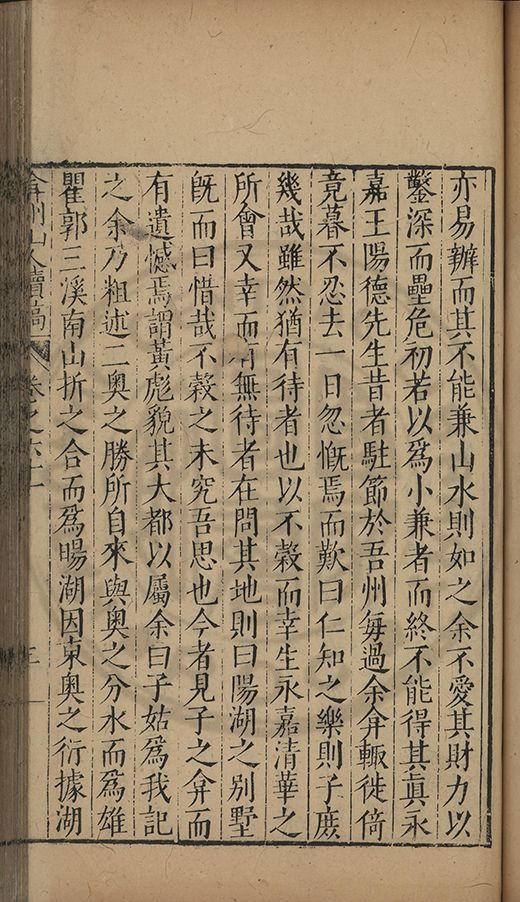 亦易辦而其不能兼山水則如之余不愛其財力以
鑿深而壘危初若以爲小兼者而終不能得其眞永
嘉王陽德先生昔者駐節於吾州每過余弇輙徙倚
竟暮不忍去一日忽慨焉而歎曰仁知之樂則子庶
幾哉雖然猶有待者也以不榖而幸生永嘉清華之
所會又幸而有無待者在問其地則曰陽湖之別墅
旣而曰惜哉不榖之未究吾思也今者見子之弇而
有遺憾焉謂黃彪貌其大都以屬余曰子姑爲我記
之余乃粗述二奥之勝所自來與奥之分水而爲雄
瞿郭三溪南山折之合而爲暘湖因東奥之衍據湖
弇州山人續稿 卷之六十 三